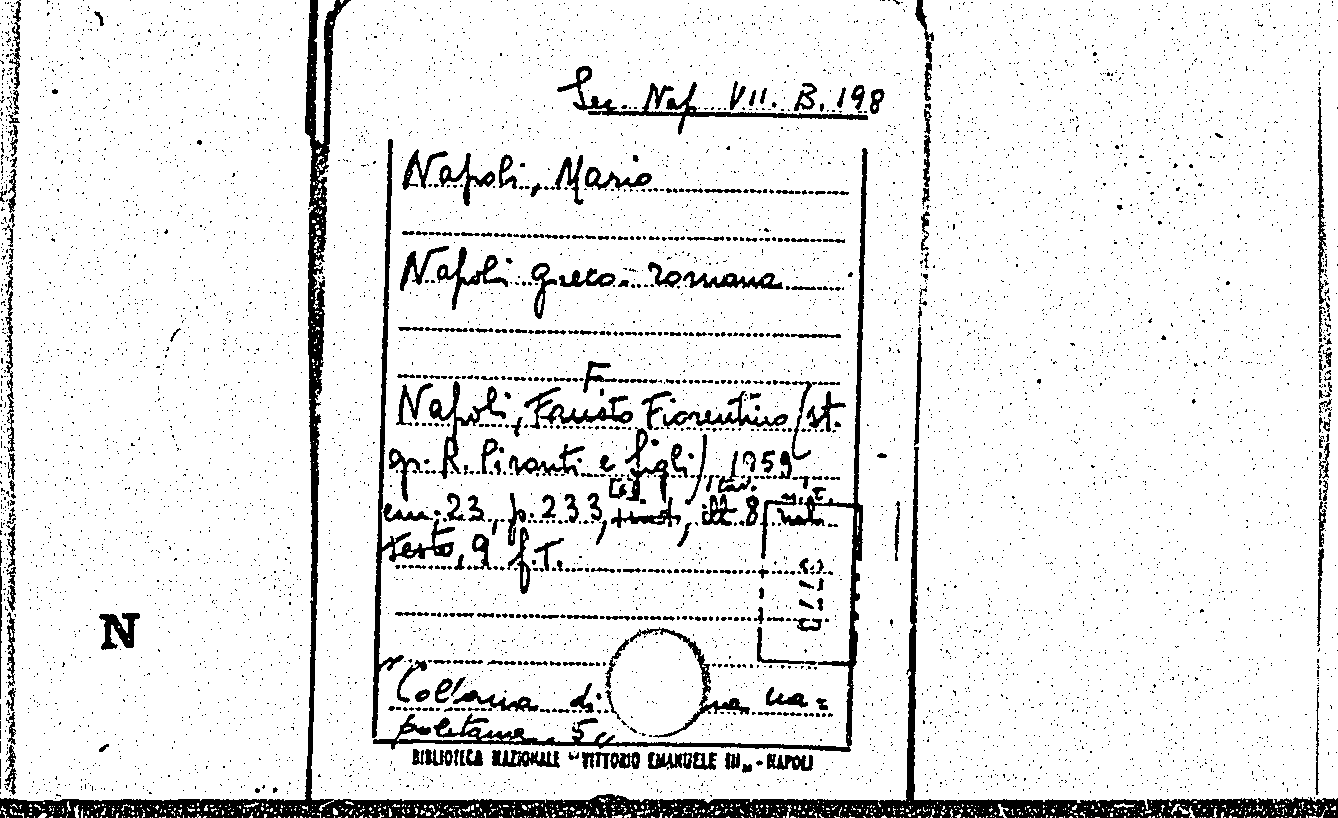 Sez. Nap. VII. B. 198
Napoli, Mario
Napoli greco-romana
F.
Napoli, Fausto Fiorentino (st.
gr. R. Pironti e figli) 1959
[6] 1 tav.
cm. 23, p. 233, ill. 8 n.t.
testo, 9 f.T.
N
Collana di na na=
poletana. 5
BIBLIOTECA NAZIONALE "VITTORIO EMANUELE III" - NAPOLI